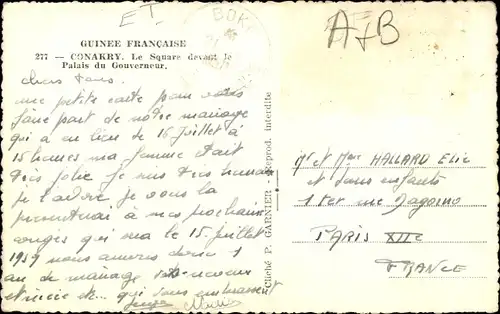 ET.
BOK
A+B
GUINEE FRANÇAISE
277 — CONAKRY. Le Square devant le
Palais du Gouverneur.
chers tous.
une petite carte pour vous
faire part de notre mariage
qui a eu lieu le 16 juillet à
15 heures ma femme était
très jolie je suis très heureux
je l'adore je vous la
presenterai à mes prochains
congés qui sera le 15 juillet
1959 nous aurons donc 1
an de mariage
et qui vous embrassent
Cliché P. GARNIER - Reprod. interdite
Mr et Mme HALLARD Elie
et leurs enfants
1 ter rue Dagorno
PARIS XIIe
FRANCE